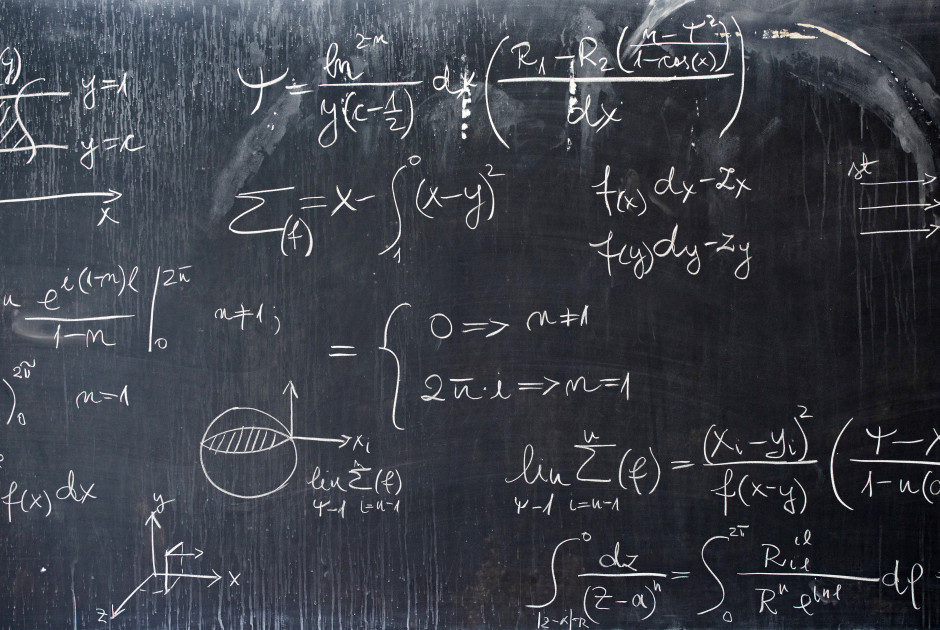 y)
y=1
y=x
x
Ψ = ln^{2n} / y(x-1/2) dx ( R_1 - R_2 ( n-Ψ^2 / 1-cos(x) ) / dx )
Σ_(f) = x - ∫_1^0 (x-y)^2
f(x) dx-zx
f(y) dy-zy
st
e^{i(1-n)l} / 1-n |_0^{2π}
n≠1;
= { 0 => n≠1
2π·i => n=1
)_0^{2π} n=1
x_i
lim_{Ψ-1} Σ_{i=n-1}^{n} (f)
lim_{Ψ-1} Σ_{i=n-1}^{n} (f) = (x_i - y_i)^2 / f(x-y) ( Ψ- / 1-n(
f(x) dx
y
x
z
∫_{|z-α|=R}^0 dz / (z-α)^n = ∫_0^{2π} R_{ie}^{il} / R^n e^{inl} dl =